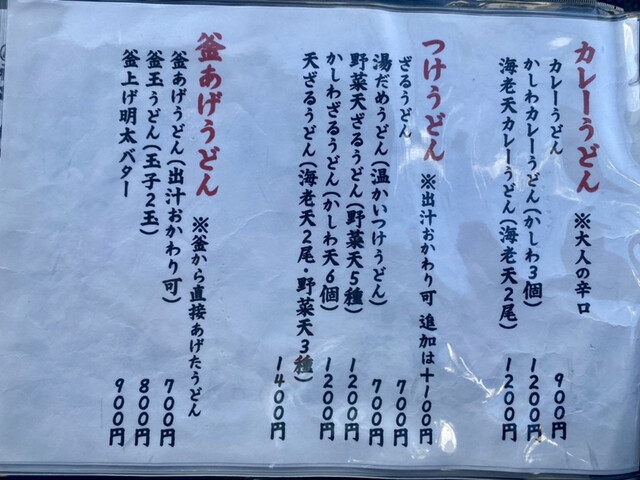 カレーうどん ※大人の辛口
カレーうどん 900円
かしわカレーうどん(かしわ3個) 1200円
海老天カレーうどん(海老天2尾) 1200円
つけうどん ※出汁おかわり可 追加は+100円
ざるうどん 700円
湯だめうどん(温かいつけうどん) 700円
野菜天ざるうどん(野菜天5種) 1200円
かしわざるうどん(かしわ天6個) 1200円
天ざるうどん(海老天2尾・野菜天3種) 1400円
釜あげうどん ※釜から直接あげたうどん
釜あげうどん(出汁おかわり可) 700円
釜玉うどん(玉子2玉) 800円
釜上げ明太バター 900円